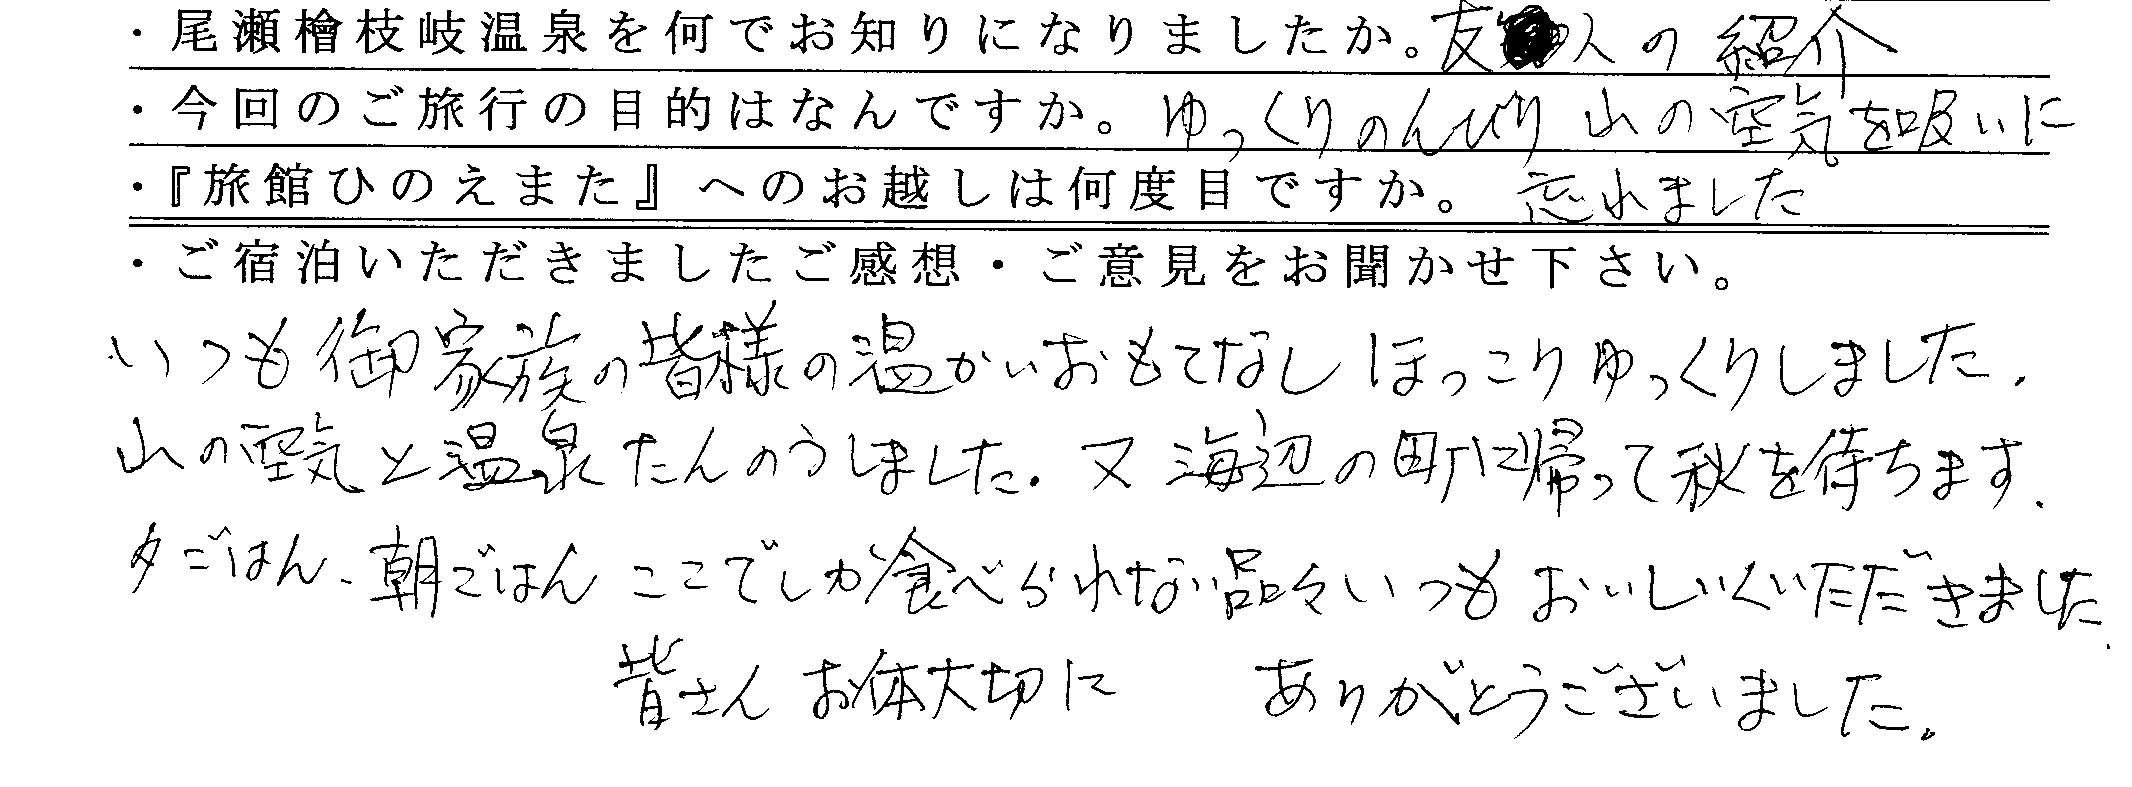 ・尾瀬檜枝岐温泉を何でお知りになりましたか。友人の紹介
・今回のご旅行の目的はなんですか。ゆっくりのんびり山の空気を吸いに
・『旅館ひのえまた』へのお越しは何度目ですか。忘れました
・ご宿泊いただきましたご感想・ご意見をお聞かせ下さい。
いつも御家族の皆様の温かいおもてなしほっこりゆっくりしました。
山の空気と温泉たんのうしました。又海辺の町に帰って秋を待ちます。
夕ごはん、朝ごはんここでしか食べられない品々いつもおいしくいただきました。
皆さんお体大切に ありがとうございました。